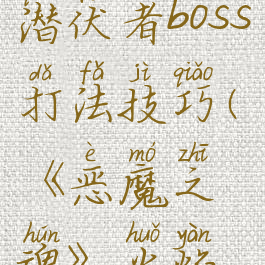 潜伏者boss
dǎ fǎ jì qiǎo
打法技巧(
è mó zhī
《恶魔之
hún huǒ yàn
魂》火焰